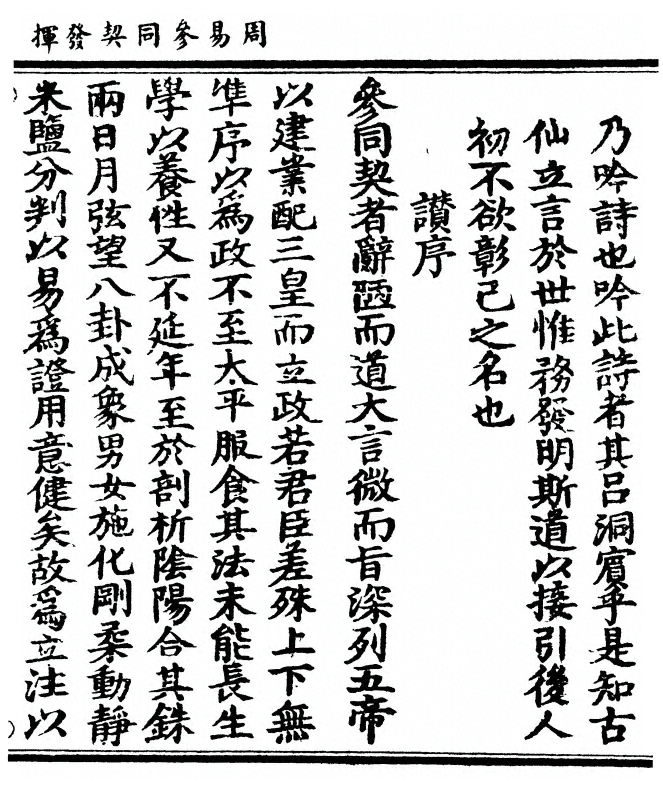 周易參同契發揮
乃吟詩也吟此詩者其呂洞賓乎是知古
仙立言於世惟務發明斯道以接引後人
初不欲彰己之名也
讃序
參同契者辭陋而道大言微而旨深列五帝
以建業配三皇而立政若君臣差殊上下無
準序以爲政不至太平服食其法未能長生
學以養性又不延年至於剖析陰陽合其銖
兩日月弦望八卦成象男女施化剛柔動靜
米鹽分判以易爲證用意健矣故爲立注以